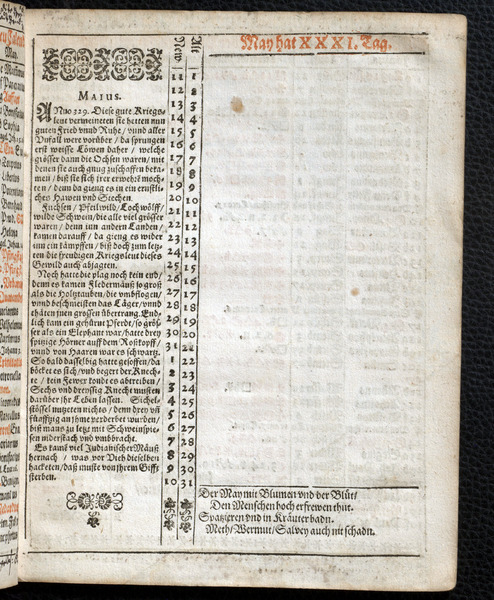 May hat XXXI. Tag.
Alt
New
MAIUS.
ANno 329. Diese gute Kriegs-
leut vermeineten sie hetten nun
guten Fried vnnd Ruhe / vnnd aller
Vnfall were vorüber / da sprungen
erst weisse Löwen daher / welche
grösser dann die Ochsen waren / mit
denen sie auch gnug zuschaffen beka-
men / biß sie sich irer erwehrt moch-
ten / denn da gieng es in ein ernstlich
Hawen vnd Stechen.
Füchsen / Pfeilwild / Loch wölff /
wilde Schwein / die alle viel grösser
waren / denn inn andern Landen /
kamen darauff / da gieng es wider
inn ein kämpffen / biß doch zum letz-
ten die freudigen Kriegsleut dieses
Gewild auch abjagten.
Noch hatte die plag noch kein end /
denn es kamen Fledermäuß so groß
als die Holtztauben / die vmbflogen /
vnnd beschmeißten das Läger / vnnd
thäten jnen grossen übertrang. End-
lich kam ein gehürnt Pferdt / so grös-
ser als ein Elephant war / hatte drey
spitzige Hörner auff dem Roßkopff /
vnnd von Haaren war es schwartz.
So bald dasselbig hatte gesoffen / da
böcket es sich / vnd begert der Knech-
te / kein Fewer konde es abtreiben /
Sechs vnd dreyssig Knecht musten
darüber ihr Leben lassen.
stössel nutzeten nichts / denn drey vñ
fünfftzig an ihme verderbt wurden /
biß mans zu letz mit Schweinspies-
sen niderstach vnd vmbbracht.
Es kamẽ viel Indianischer Mäuß
hernach / was vor Vieh dieselben
hacketen / daß muste von jhrem Gifft
sterben.
11 1
12 2
13 3
14 4
15 5
16 6
17 7
18 8
19 9
20 10
21 11
22 12
23 13
24 14
25 15
26 16
27 17
28 18
29 19
30 20
31 21
1 22
2 23
3 24
4 25
5 26
6 27
7 28
8 29
9 30
10 31
Der May mit Blumen vnd der Blüt /
Den Menschen hoch erfrewen thut.
Spatzieren vnd in Kräuter badn.
Meth / Wermut / Salvey auch nit schadn.